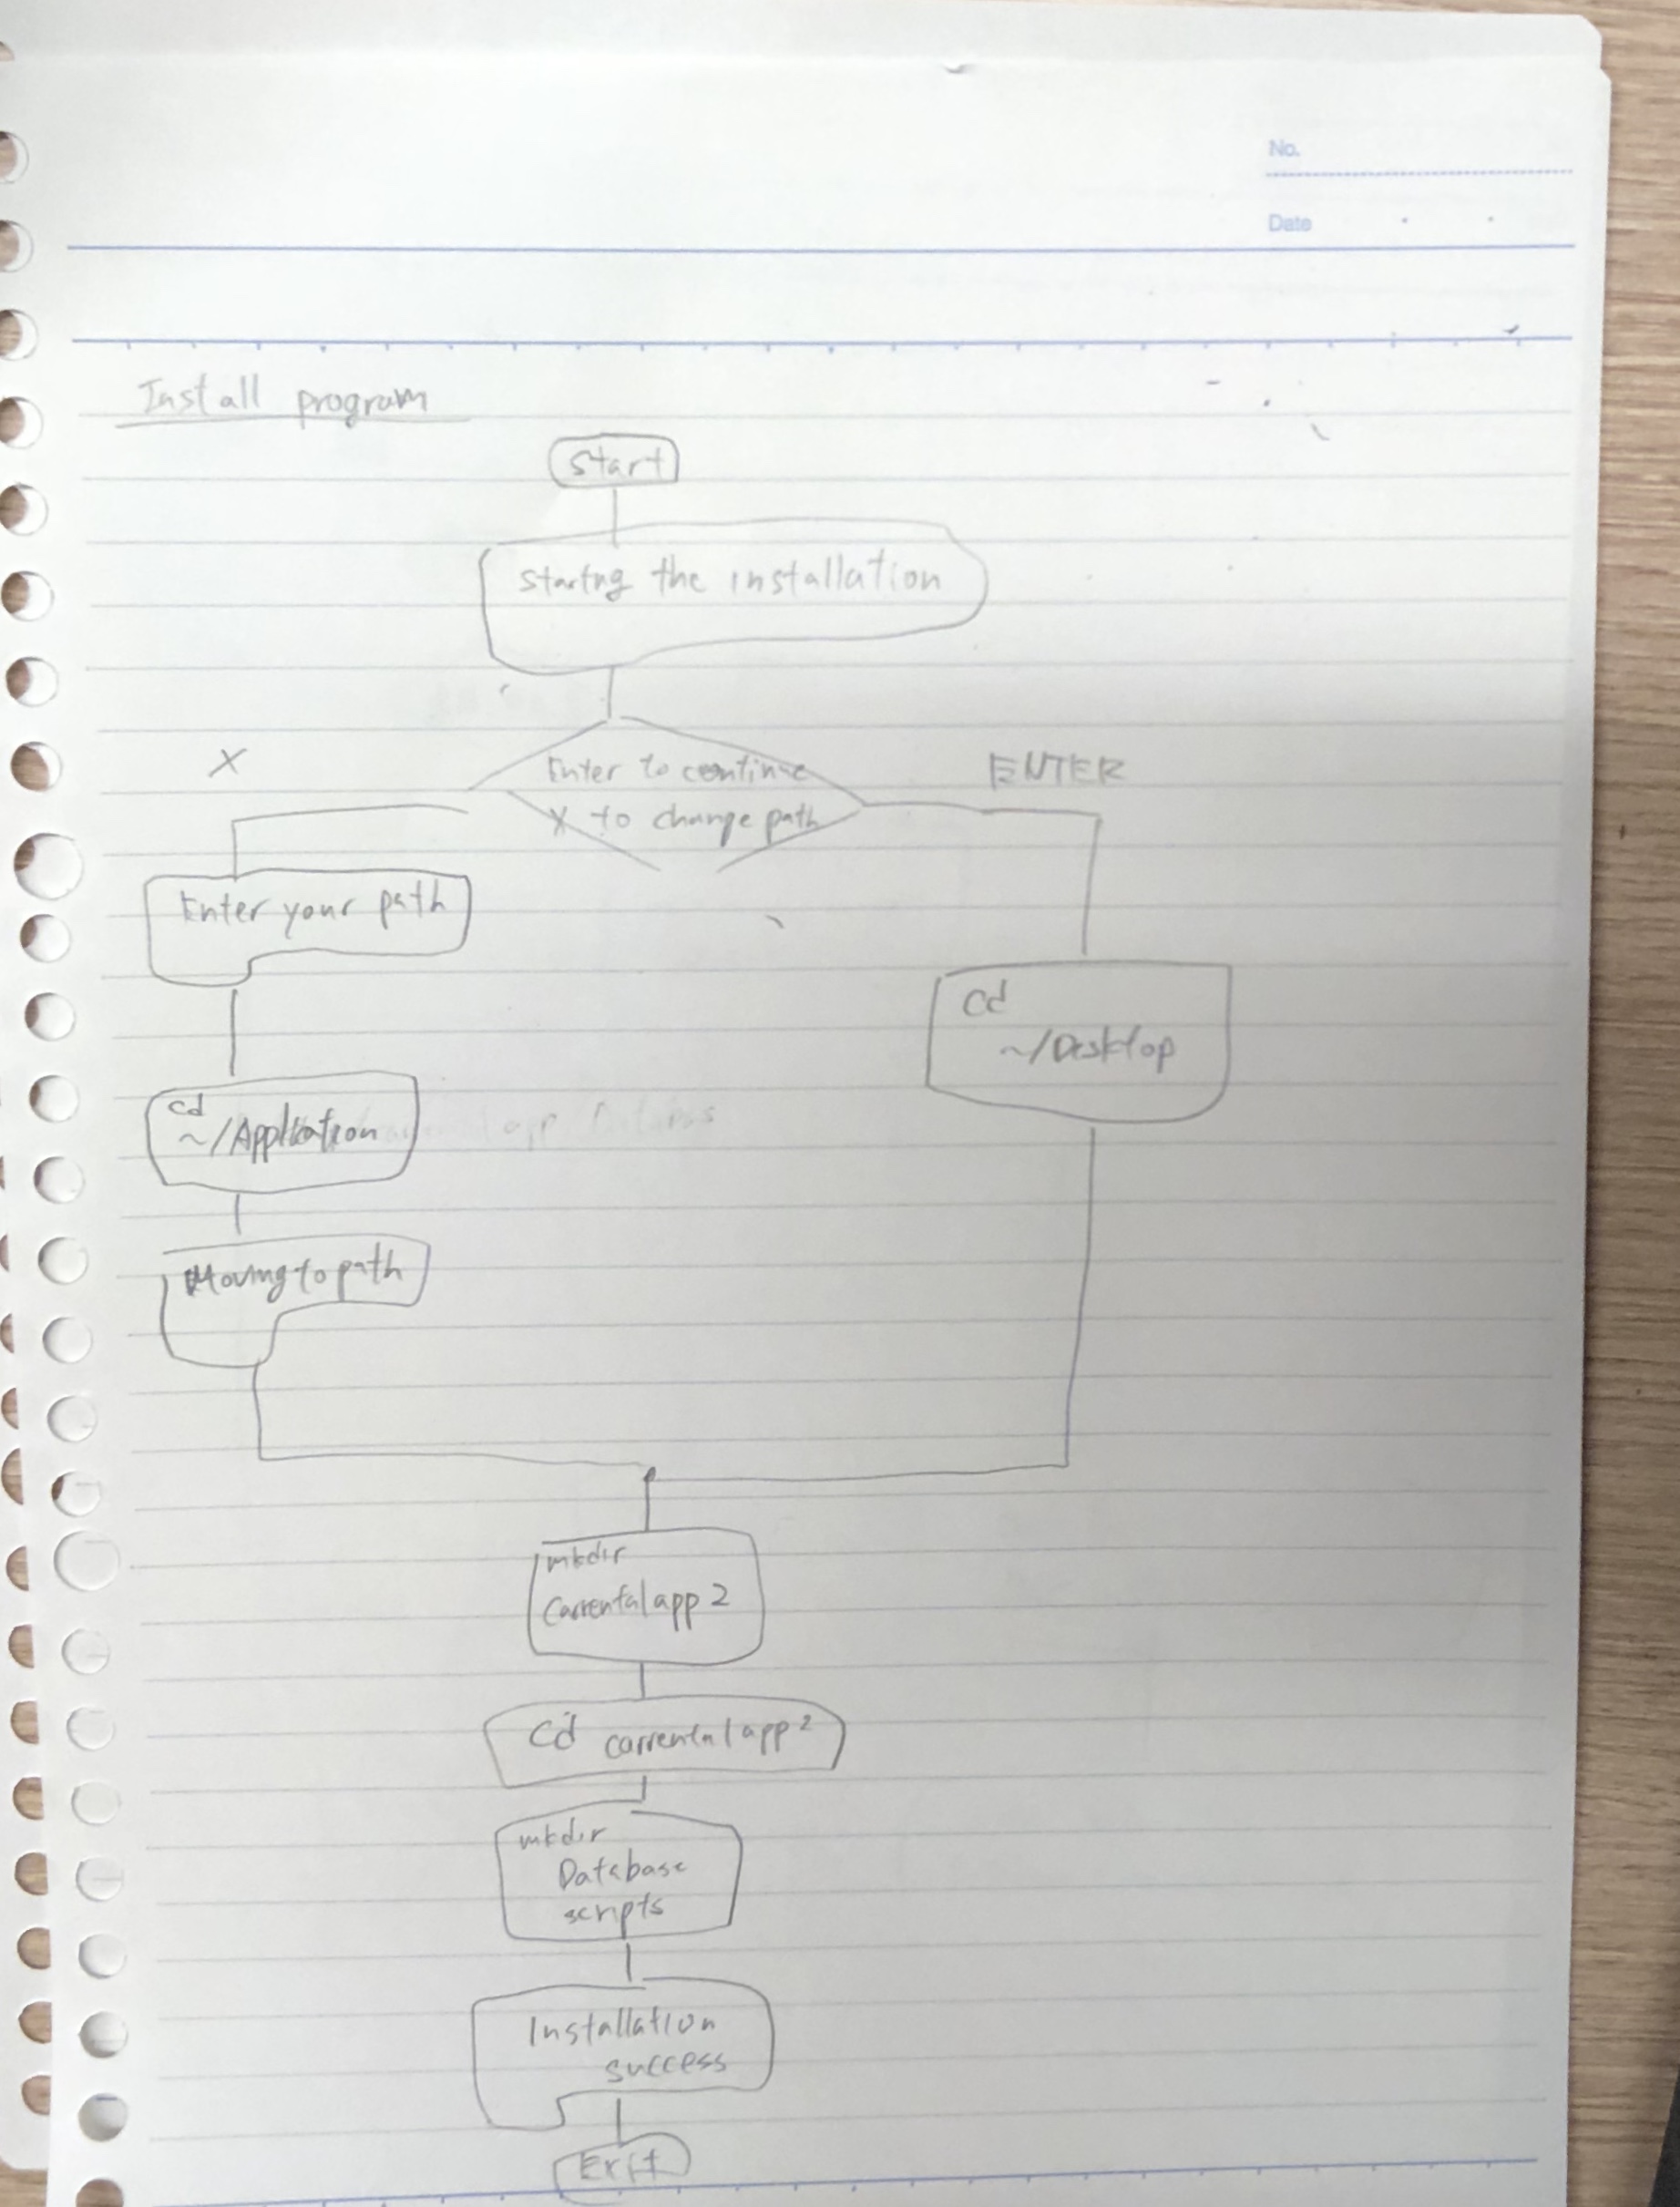 No.
Date
Install program
start
Startng the installation
X
Enter to continue
X to change path
ENTER
Enter your path
cd
~/Desktop
cd
~/Application
app
Moving to path
mkdir
Carrentalapp2
Cd carrentalapp2
mkdir
Database
scripts
Installation
success
Exit